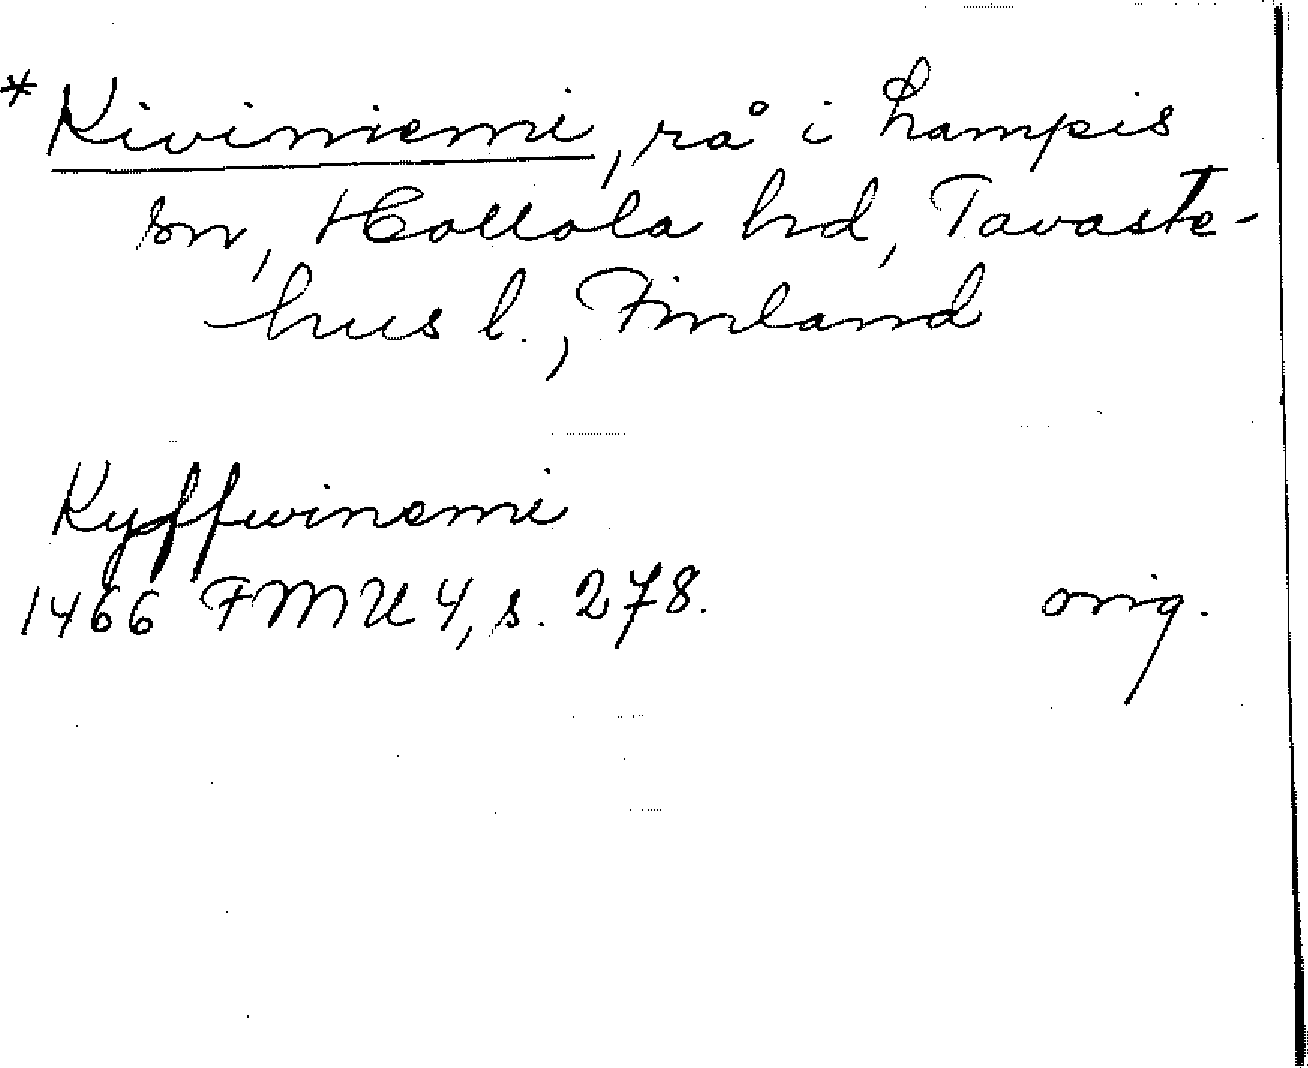 * Kiviniemi, rå i Lampis
sn, Hollola hd, Tavaste-
hus l., Finland
Kyffwinemi
1466 FMU 4, s. 278. orig.